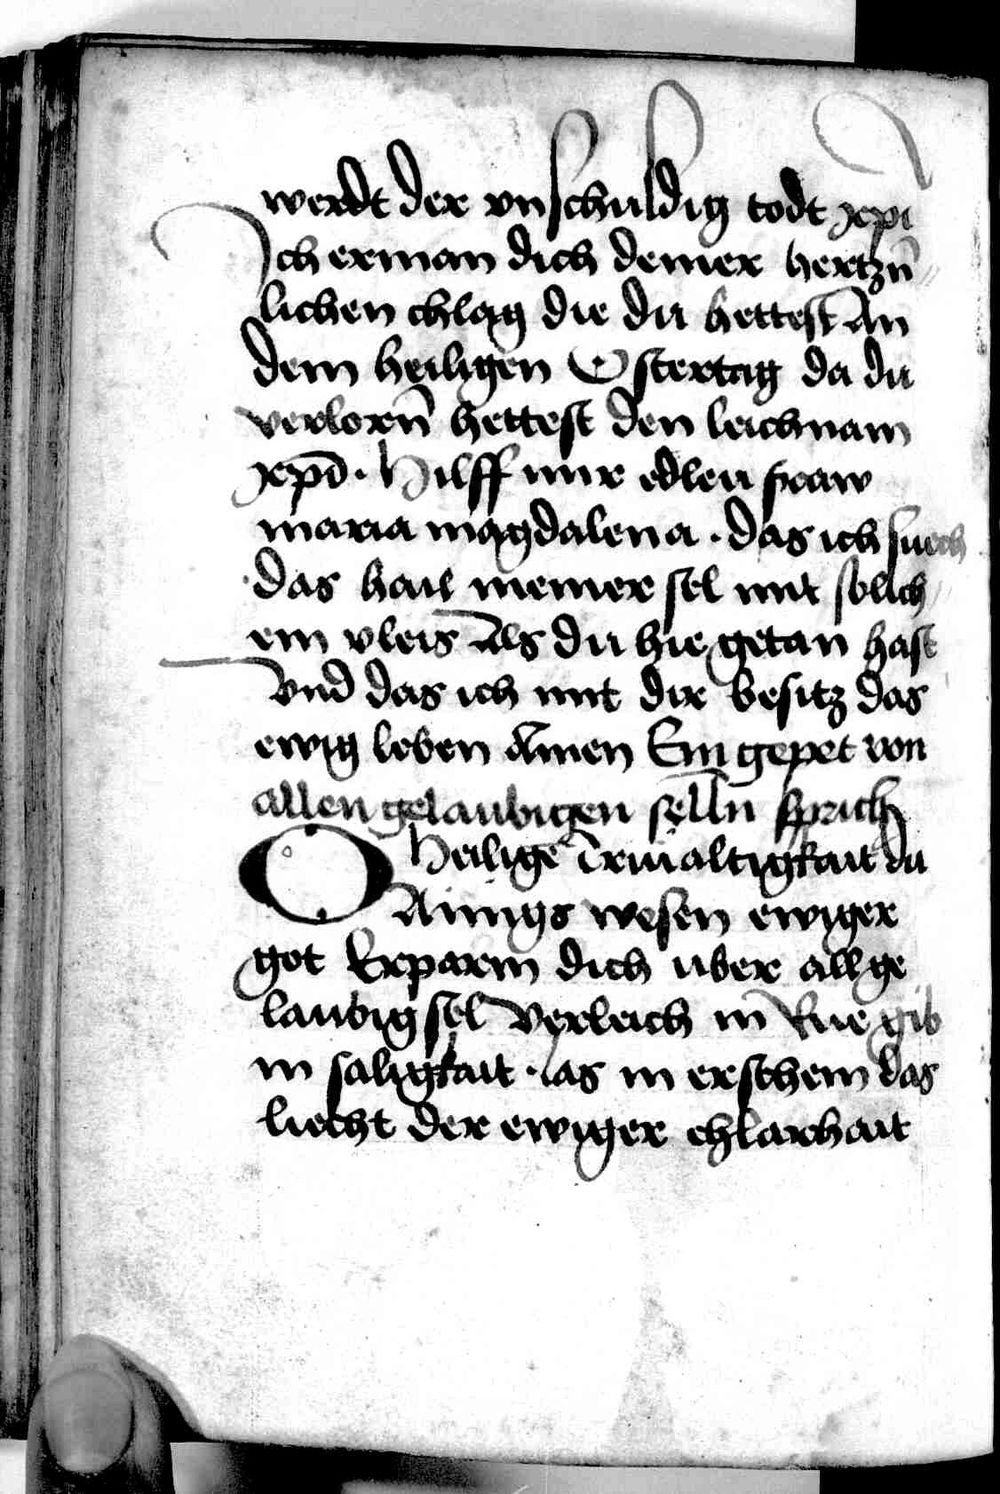 werdt der vnschuldig todt xpi
Ich erman dich deiner hertzn̄
lichen chlag die du hettest An
dem heiligen Ostertag da du
verlorn̄ hettest den leichnam
xpō · Hilff mir edlew fraw
maria magdalena · das ich suech
das hail meiner sel mit solich
em vleis Als du hie getan hast
Vnd das ich mit dir besitz das
ewig leben Amen Ein gepet von
allen gelaubigen selln̄ sprich
O Heilige Triualtigkait du
Ainigs wesen ewiger
got Erparm dich uber all ge
laubig sel Verleich in Rue gib
in saligkait · las in erschein das
liecht der ewiger chlarhait